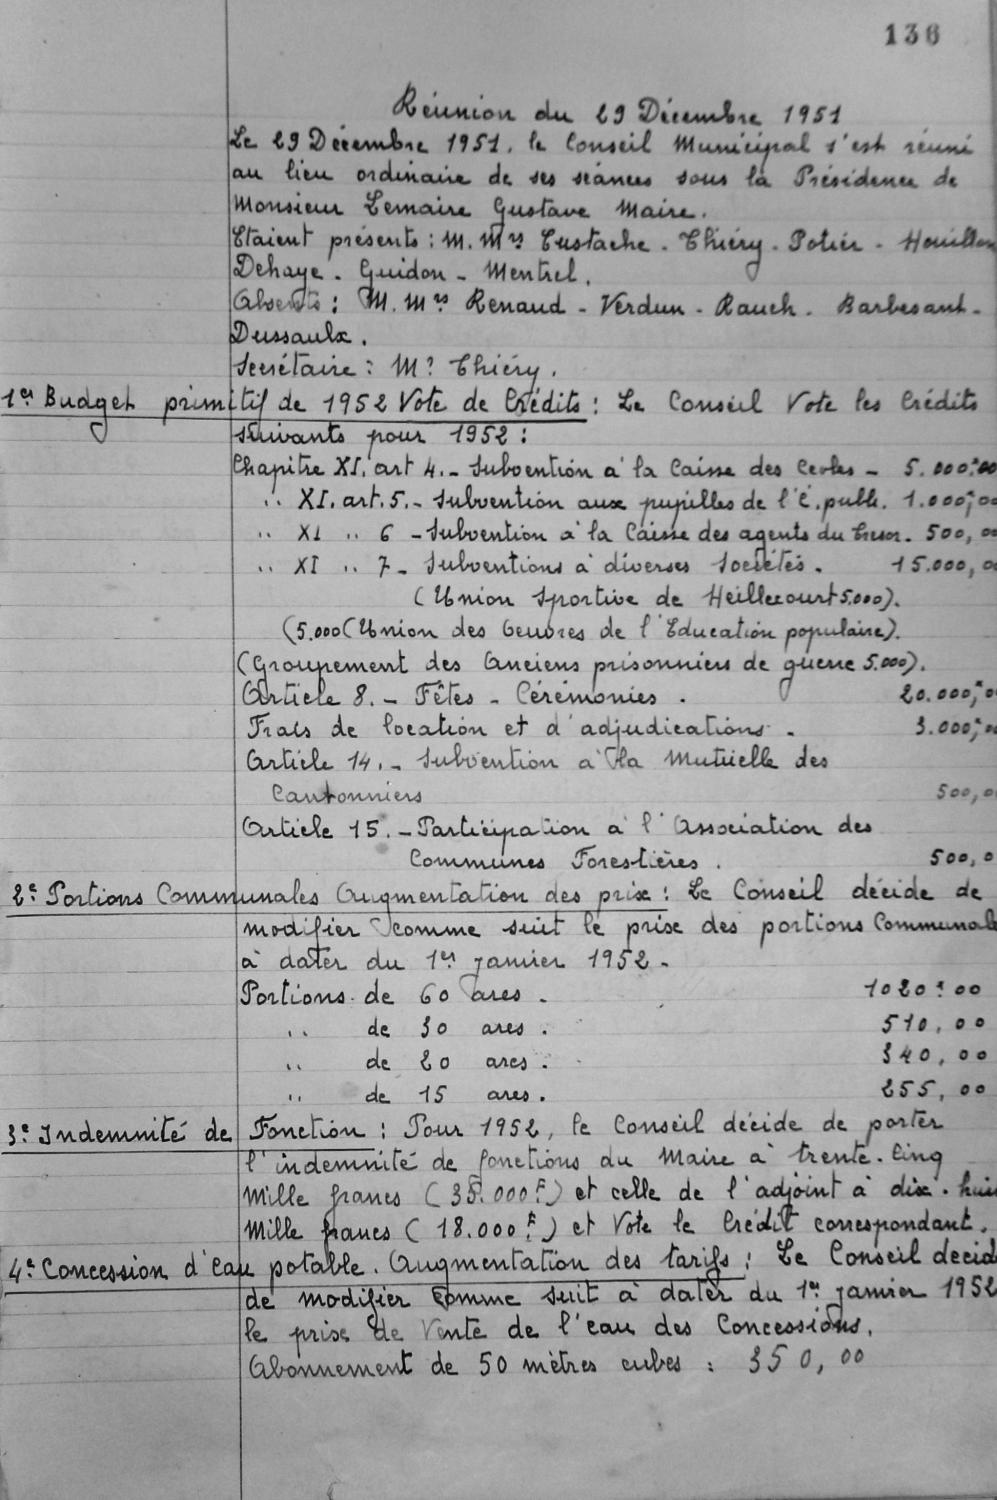 136
Réunion du 29 Décembre 1951
Le 29 Décembre 1951, le Conseil Municipal s'est réuni
au lieu ordinaire de ses séances sous la Présidence de
Monsieur Lemaire Gustave Maire.
Etaient présents : M. Mrs Eustache - Thiéry - Potier - Houillon
Dehaye - Guidon - Mentrel.
Absents : M. Mrs Renaud - Verdun - Rauch - Barbesant -
Dussaulx.
Secrétaire : Mr Thiéry.
1er Budget primitif de 1952 Vote de Crédits : Le Conseil Vote les Crédits
suivants pour 1952 :
Chapitre XI. art 4. - Subvention à la Caisse des Ecoles - 5.000F00
" XI. art. 5. - Subvention aux pupilles de l'É. publ. 1.000F,00
" XI " 6 - Subvention à la Caisse des agents du Tresor. 500,00
" XI " 7 - Subventions à diverses Sociétés. 15.000,00
(Union Sportive de Heillecourt 5.000).
(5.000 (Union des Oeuvres de l'Education populaire).
(Groupement des Anciens prisonniers de guerre 5.000).
Article 8. - Fêtes - Cérémonies . 20.000F,00
Frais de location et d'adjudications - 3.000F,00
Article 14. - Subvention à la Mutuelle des
Cantonniers 500,0
Article 15. - Participation à l'Association des
Communes Forestières. 500,0
2e Portions Communales Augmentation des prix : Le Conseil décide de
modifier comme suit le prix des portions Communales
à dater du 1er Janvier 1952 -
Portions de 60 ares . 1020F00
" de 30 ares . 510,00
" de 20 ares . 340,00
" de 15 ares . 255,00
3e Indemnité de Fonction : Pour 1952, le Conseil décide de porter
l'indemnité de fonctions du Maire à trente-Cinq
Mille francs (35.000F) et celle de l'adjoint à dix-huit
Mille francs (18.000F) et Vote le Crédit correspondant.
4e Concession d'Eau potable. Augmentation des tarifs : Le Conseil decid
de modifier comme suit à dater du 1er janvier 1952
le prix de Vente de l'eau des Concessions.
Abonnement de 50 mètres cubes : 350,00